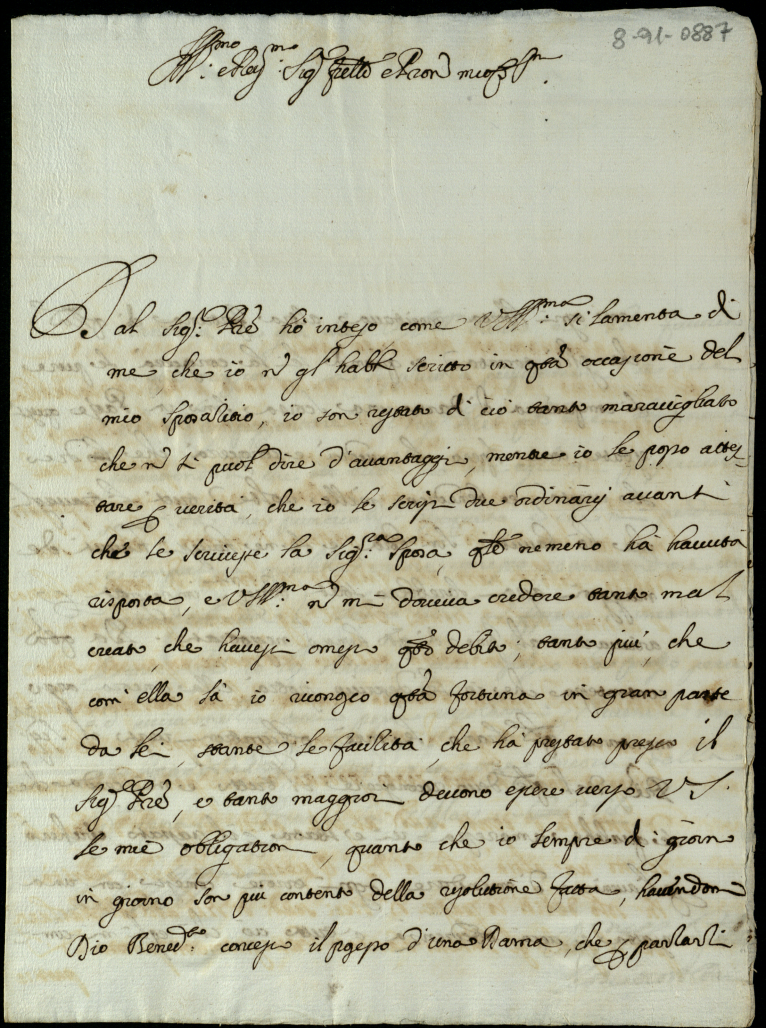 8-91-0887
Ill:mo e Rev:mo Sig.r fr͠ello e Pron͠ mio
Dal Sig.r P͠re hò inteso come VS Ill:ma si lamenta di
me, che io n͠ gl' habb scritto in q͠sta occasione del
mio sposalitio, io son restato di ciò tanto maravigliato
che n͠ si puol dire d'avantaggi, mentre io le posso attes=
tare p verità, che io le scrissi due ordinarij avanti
che le scrivesse la Sig:ra Sposa, nemeno hà havuta
risposta, e VS Ill:ma n͠ mi doveva credere tanto mal
creato, che havessi omesso q͠sto debito; tanto più, che
com' ella sà io riconosco q͠sta fortuna in gran parte
da lei, stante le facilità, che hà prestato presso il
Sig.r P͠re, e tanto maggiori devono essere verso VS.
le mie obligation, quanto che io sempre di giorn
in giorno son più contento della resolutione fatta, havendomi
Dio Bened:to concesso il possesso d'una Dama, che p parlarli